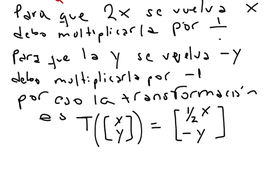 Para que 2x se vuelva x
debo multiplicarla por 1/.
Para que la y se vuelva -y
debo multiplicarla por -1
por eso la transformación
es T([x y]) = [1/2 x -y]